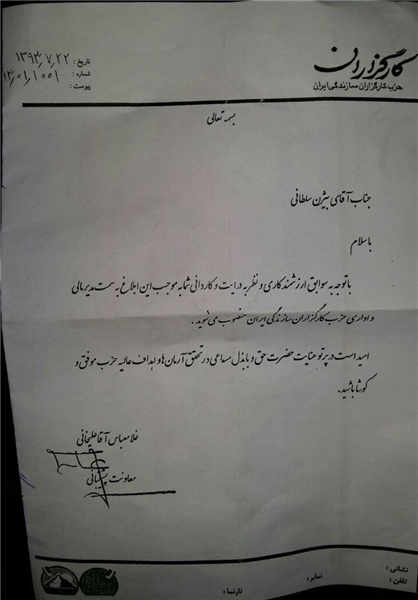 کارگزاران
حزب کارگزاران سازندگی ایران
تاریخ : ۱۳۹۳/۷/۲۲
شماره : ۱۲/۰۱/۱۰۰۱
پیوست :
بسمه تعالی
جناب آقای بیژن سلطانی
با سلام
با توجه به سوابق ارزشمند کاری و نظر به درایت و کاردانی شما به موجب این ابلاغ به سمت مدیر مالی
و اداری حزب کارگزاران سازندگی ایران منصوب می شوید .
امید است در پرتو عنایت حضرت حق و با بذل مساعی در تحقق آرمان ها و اهداف عالیه حزب موفق و
کوشا باشید .
غلامعباس آقاعلیخانی
معاونت پشتیبانی
نشانی :
تلفن :
نمابر :
تارنما :